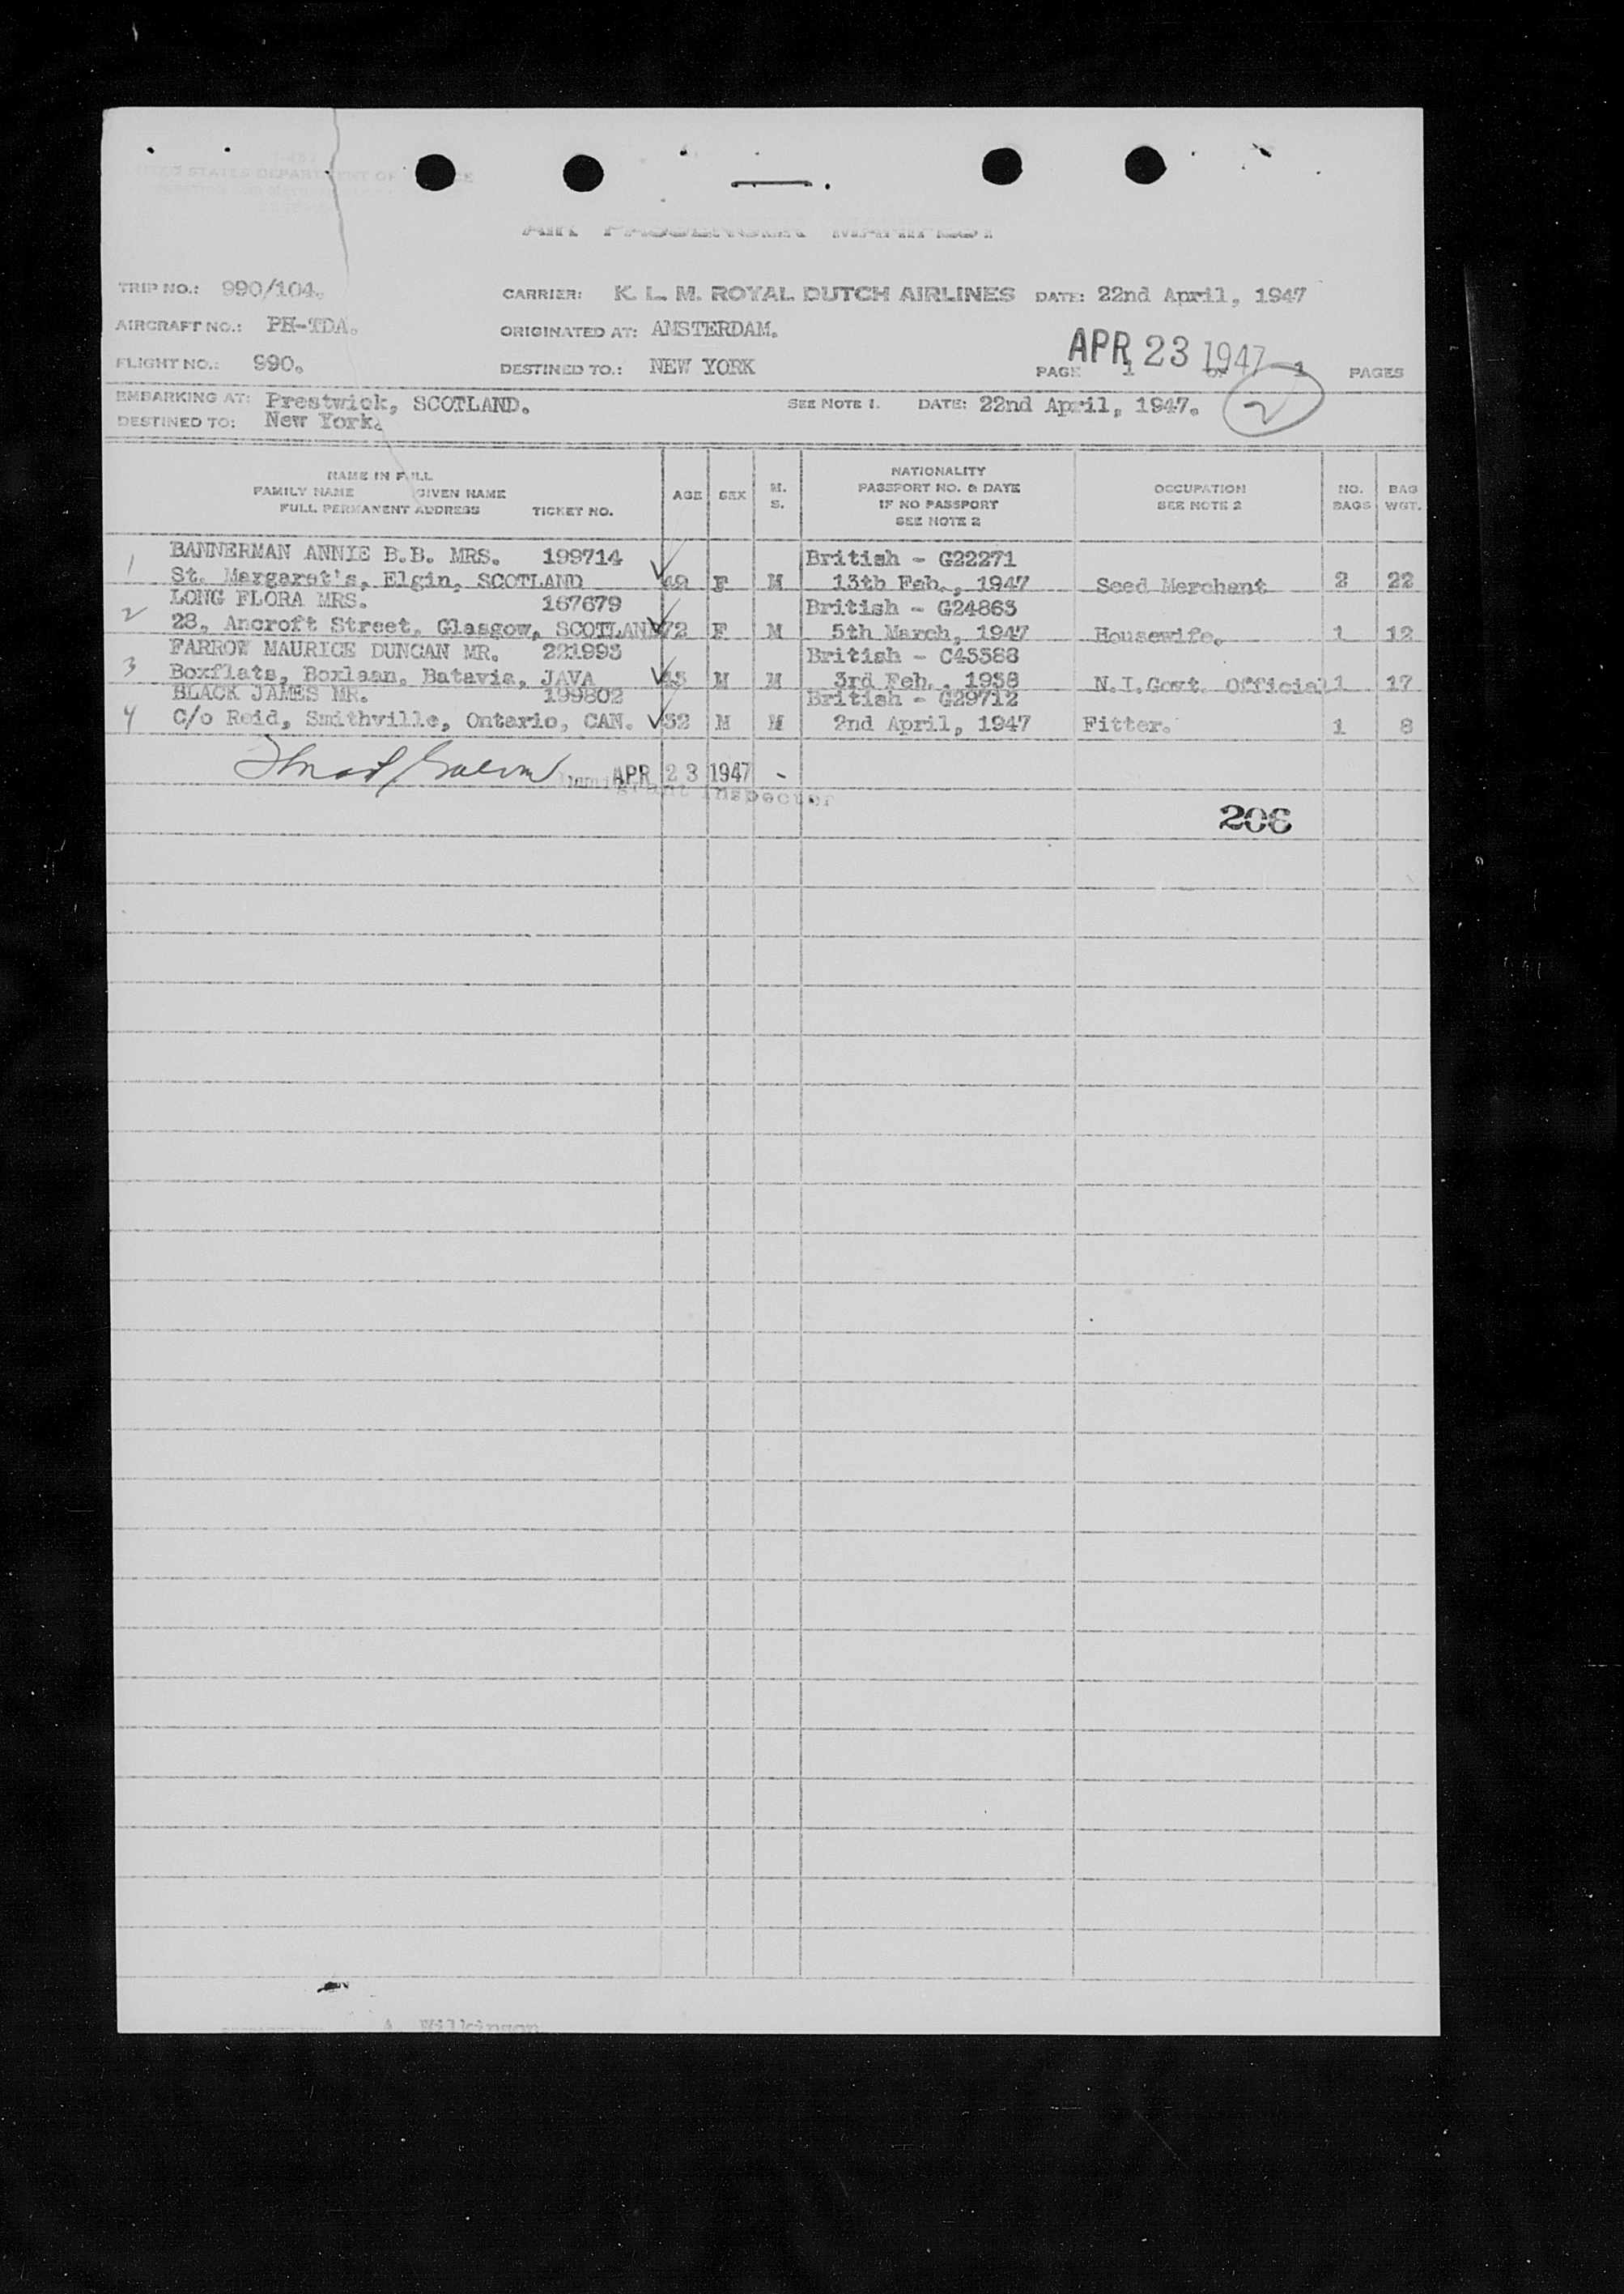 UNITED STATES DEPARTMENT OF
AIR PASSENGER MANIFEST
TRIP NO.: 990/104. CARRIER: K. L. M. ROYAL DUTCH AIRLINES DATE: 22nd April, 1947
AIRCRAFT NO.: PH-TDA. ORIGINATED AT: AMSTERDAM.
APR 23 1947
FLIGHT NO.: 990. DESTINED TO.: NEW YORK PAGE 1 OF 1 PAGES
EMBARKING AT: Prestwick, SCOTLAND. SEE NOTE 1. DATE: 22nd April, 1947. 2
DESTINED TO: New York.
NAME IN FULL
FAMILY NAME GIVEN NAME
FULL PERMANENT ADDRESS TICKET NO.
AGE SEX M. S.
NATIONALITY
PASSPORT NO. & DATE
IF NO PASSPORT
SEE NOTE 2
OCCUPATION
SEE NOTE 2
NO. BAGS
BAG WGT.
BANNERMAN ANNIE B.B. MRS. 199714 British - G22271
1 St. Margaret's, Elgin, SCOTLAND 49 F M 13th Feb., 1947 Seed Merchant 2 22
LONG FLORA MRS. 167679 British - G24863
2 28, Ancroft Street, Glasgow, SCOTLAND 72 F M 5th March, 1947 Housewife. 1 12
FARROW MAURICE DUNCAN MR. 221993 British - C45588
3 Boxflats, Boxlaan, Batavia, JAVA 45 M M 3rd Feb., 1938 N.I.Govt. Official 1 17
BLACK JAMES MR. 199802 British - G29712
4 C/o Reid, Smithville, Ontario, CAN. 32 M M 2nd April, 1947 Fitter. 1 8
APR 23 1947 -
Immigrant Inspector
206
A. Wilkinson